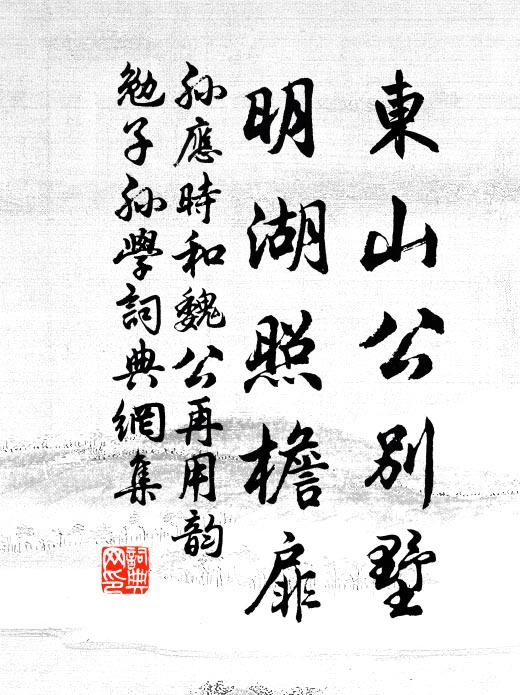 東山公別墅
明湖照檐扉
孫應時和魏公再用韵
勉子孫學詞典網集
詞典
网印